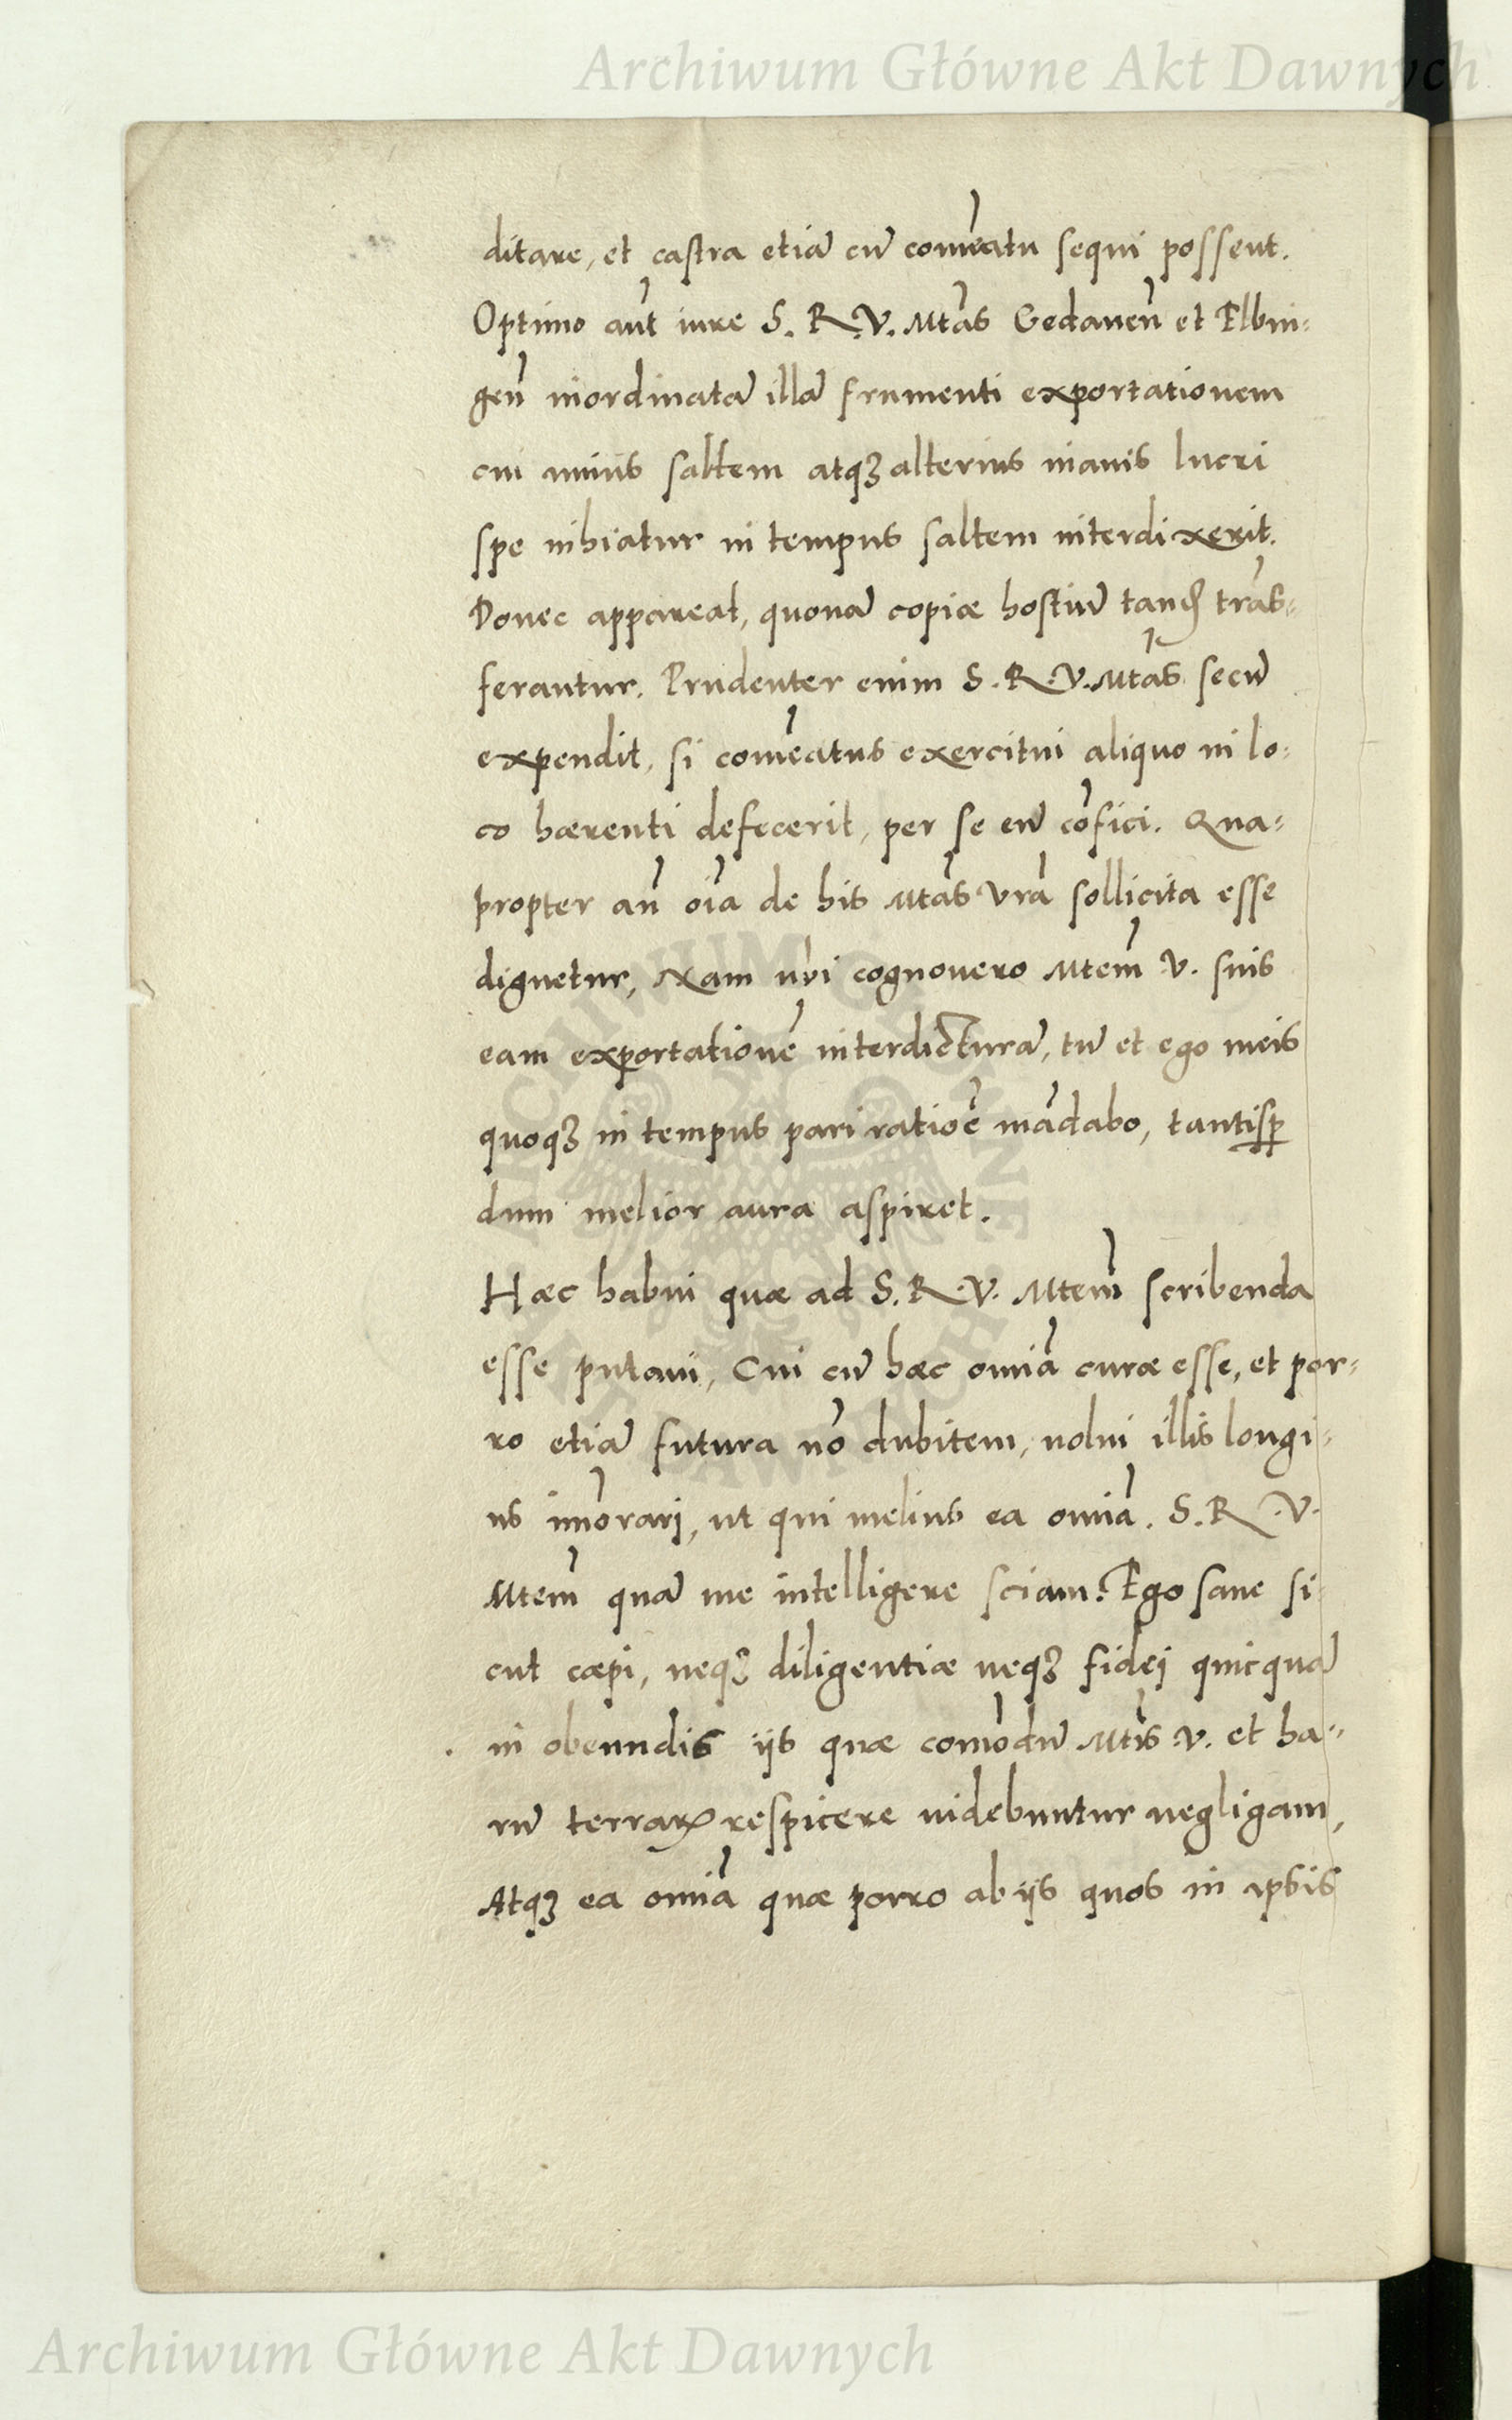 Archiwum Główne Akt Dawnych
ditare, et castra etiā cū com̄eatu sequi possent.
Optimo aut̄ iure S. R. V. Mtās Gedaneñ et Elbin=
geñ inordinatā illā frumenti exportationem
cui unius saltem atqꝫ alterius inanis lucri
spe inhiatur in tempus saltem interdixerit.
Donec appareat, quonā copiæ hostiū tandē trās=
ferantur. Prudenter enim S. R. V. Mtās secū
expendit, si com̄eatus exercitui aliquo in lo=
co hærenti defecerit, per se eū cōfici. Qua=
propter añ oīa de his Mtās Vrā sollicita esse
dignetur, Nam ubi cognouero Mtem̄ V. suis
eam exportationē interdicturā, tū et ego meis
quoqꝫ in tempus pari ratiōē mādabo, tantisꝑ
dum melior aura aspiret.
Hæc habui quæ ad S. R. V. Mtem̄ scribenda
esse putaui, Cui cū hæc omīa curæ esse, et por=
ro etiā futura nō dubitem, nolui illis longi=
us im̄orarj, ut qui melius ea omīa. S. R. V.
Mtem̄ quā me intelligere sciam. Ego sane si=
cut cæpi, neqꝫ diligentiæ neqꝫ fidej quicquā
in obeundis ijs quæ com̄odū Mtīs V. et ha=
rū terraꝝ respicere uidebuntur negligam,
Atqꝫ ea omīa quæ porro ab ijs quos in ipsis
Archiwum Główne Akt Dawnych